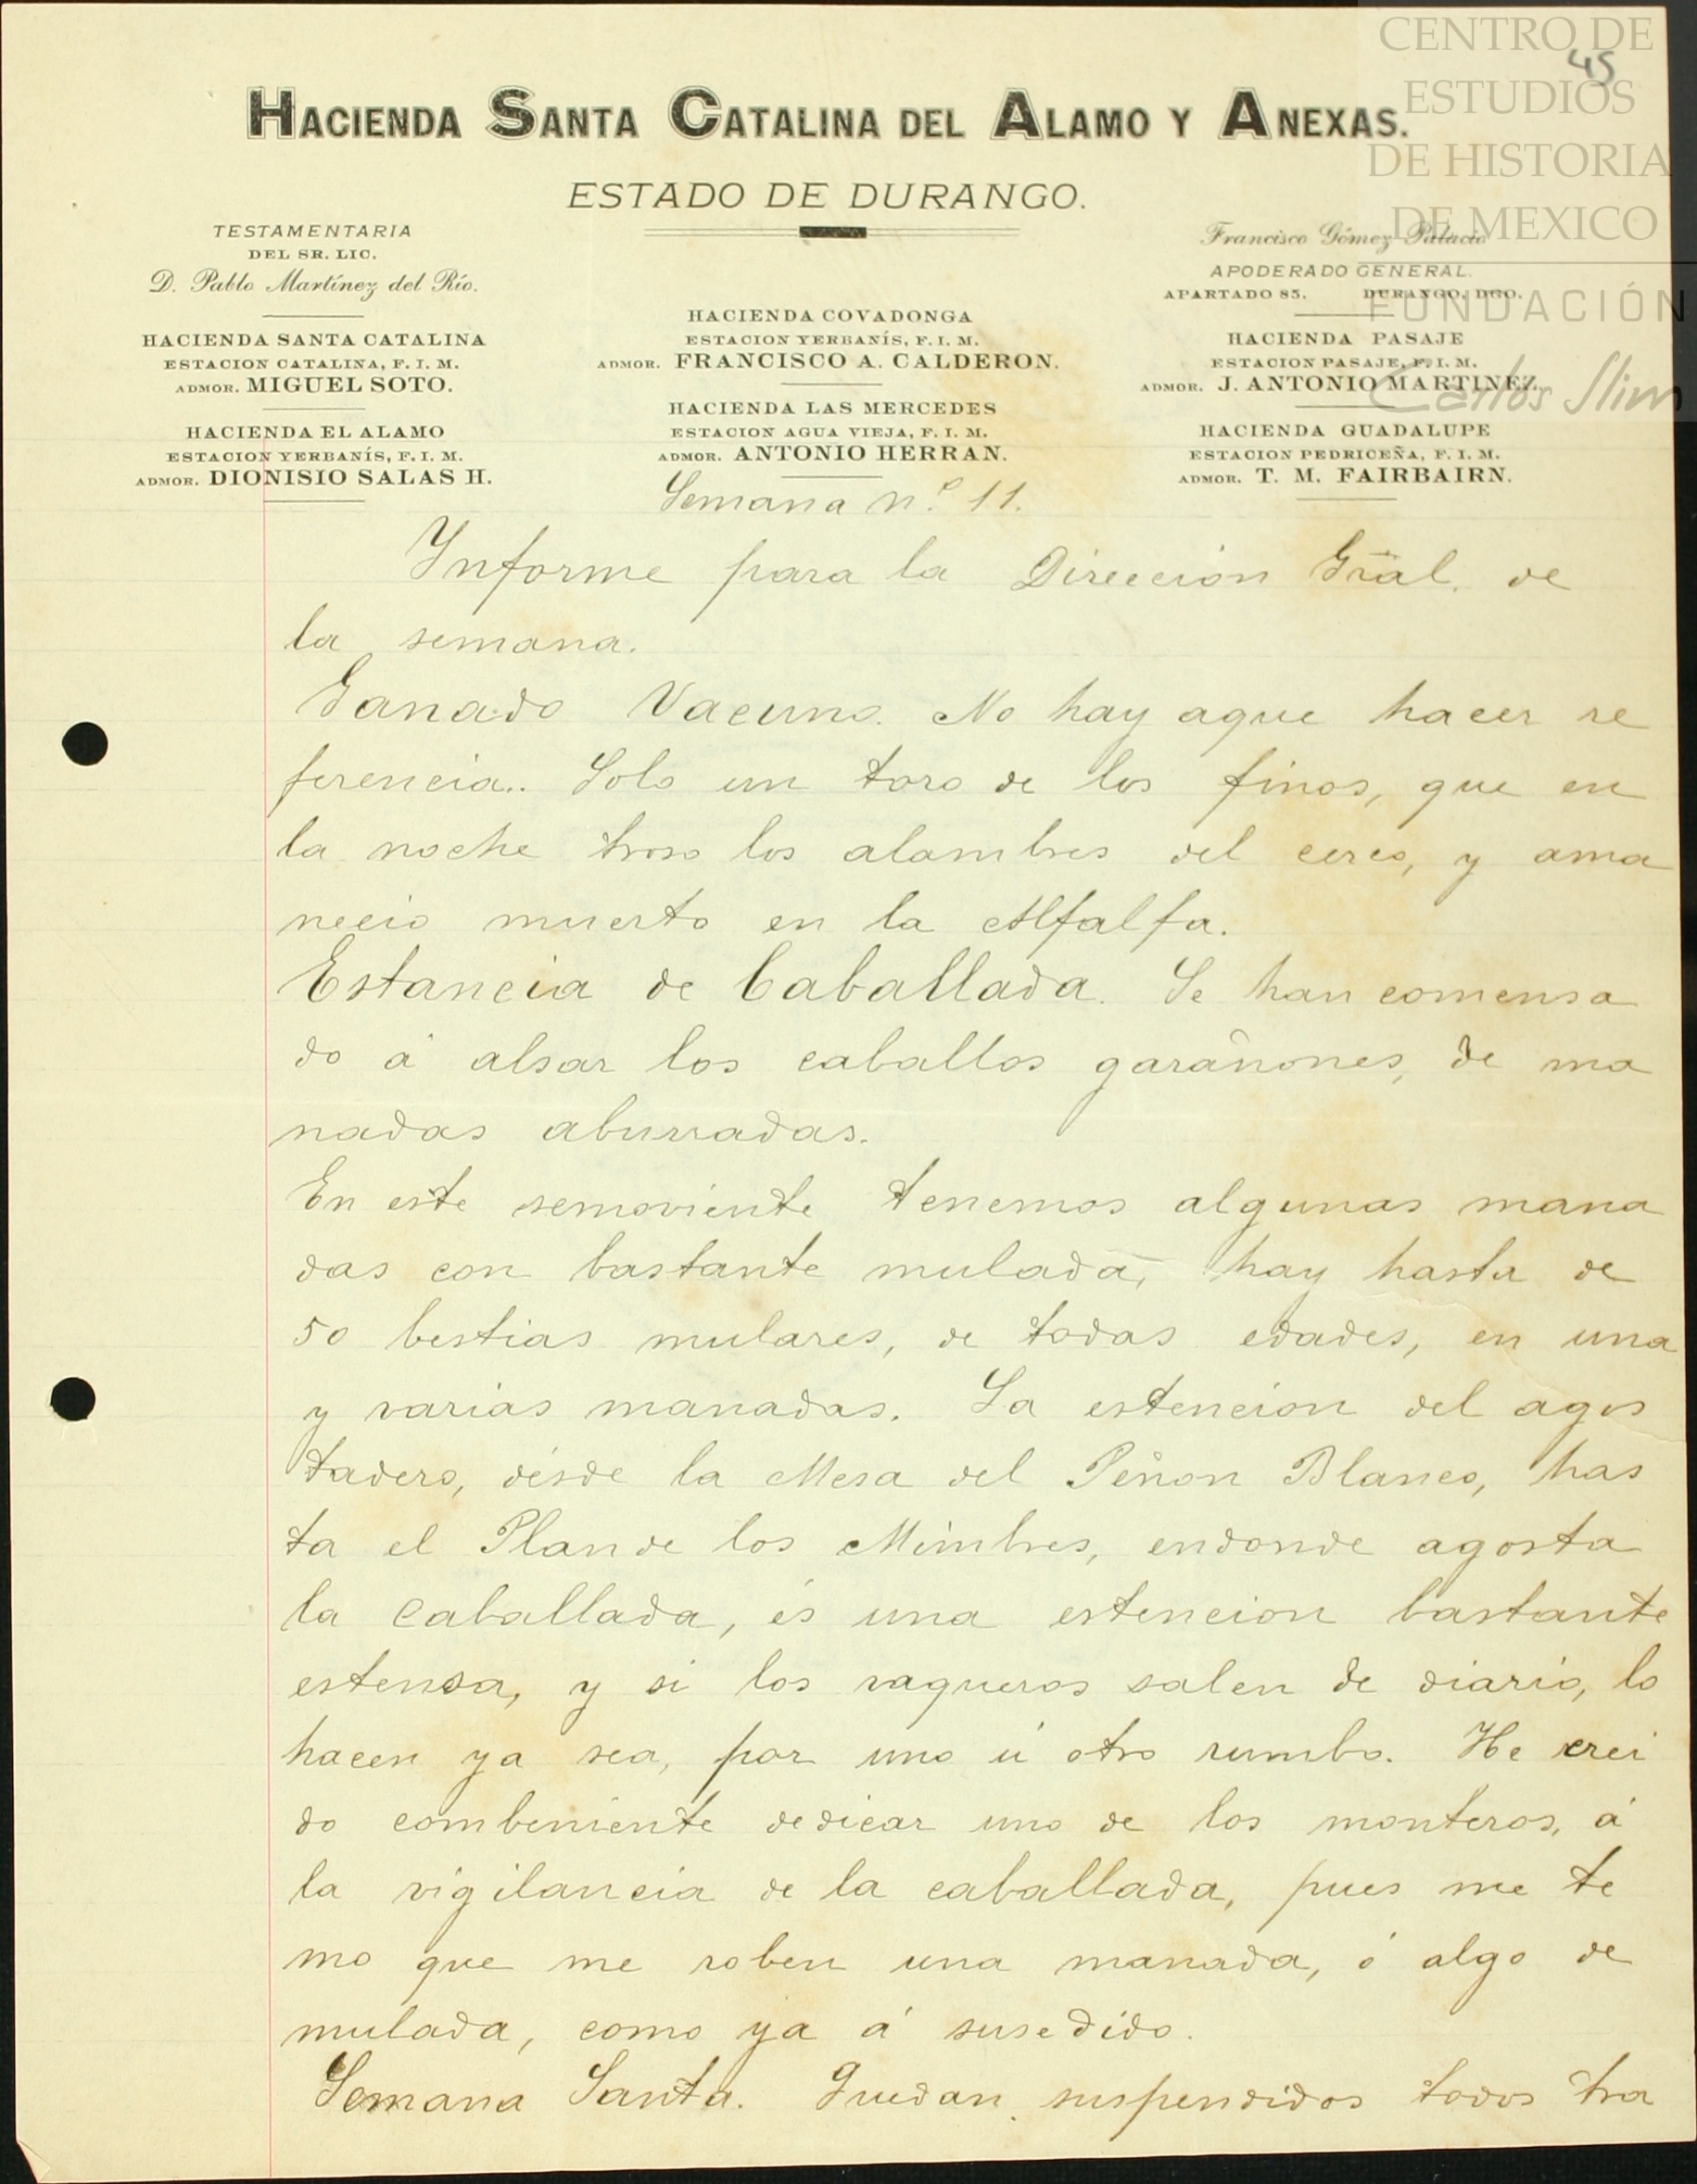 CENTRO DE
ESTUDIOS
DE HISTORIA
DE MEXICO
FUNDACIÓN
Carlos Slim
45
HACIENDA SANTA CATALINA DEL ALAMO Y ANEXAS.
ESTADO DE DURANGO.
TESTAMENTARIA
DEL SR. LIC.
D. Pablo Martínez del Río.
HACIENDA SANTA CATALINA
ESTACION CATALINA, F. I. M.
ADMOR. MIGUEL SOTO.
HACIENDA EL ALAMO
ESTACION YERBANÍS, F. I. M.
ADMOR. DIONISIO SALAS H.
HACIENDA COVADONGA
ESTACION YERBANÍS, F. I. M.
ADMOR. FRANCISCO A. CALDERON.
HACIENDA LAS MERCEDES
ESTACION AGUA VIEJA, F. I. M.
ADMOR. ANTONIO HERRAN.
Francisco Gómez Palacio
APODERADO GENERAL.
APARTADO 85. DURANGO, DGO.
HACIENDA PASAJE
ESTACION PASAJE, F. I. M.
ADMOR. J. ANTONIO MARTINEZ.
HACIENDA GUADALUPE
ESTACION PEDRICEÑA, F. I. M.
ADMOR. T. M. FAIRBAIRN.
Semana n.º 11.
Ynforme para la Direccion Gral. de
la semana.
Ganado Vacuno. No hay aque hacer re
ferencia.. Solo un toro de los finos, que en
la noche troso los alambres del cerco, y ama
necio muerto en la Alfalfa.
Estancia de Caballada. Se han comensa
do á alsar los caballos garañones, de ma
nadas aburradas.
En este semoviente tenemos algunas mana
das con bastante mulada, hay hasta de
50 bestias mulares, de todas edades, en una
y varias manadas. La estencion del agos
tadero, désde la Mesa del Peñon Blanco, has
ta el Plan de los Mimbres, endonde agosta
la Caballada, és una estencion bastante
estensa, y si los vaqueros salen de diario, lo
hacen ya sea, por uno ú otro rumbo. He crei
do combeniente dedicar uno de los monteros, á
la vigilancia de la caballada, pues me te
mo que me roben una manada, ó algo de
mulada, como ya á susedido.
Semana Santa. Quedan suspendidos todos tra